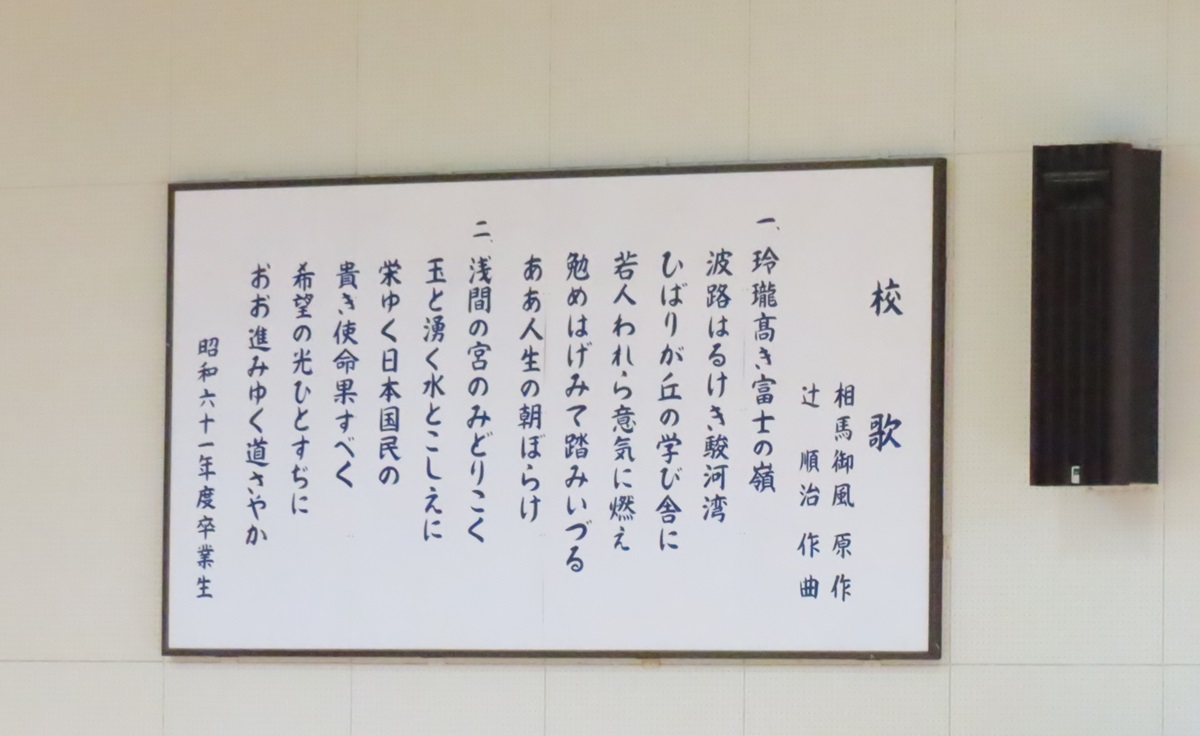 校歌
相馬御風 原作
辻 順治 作曲
一、玲瓏髙き富士の嶺
波路はるけき駿河湾
ひばりが丘の学び舎に
若人われら意気に燃え
勉めはげみて踏みいづる
ああ人生の朝ぼらけ
二、浅間の宮のみどりこく
玉と湧く水とこしえに
栄ゆく日本国民の
貴き使命果すべく
希望の光ひとすぢに
おお進みゆく道さやか
昭和六十一年度卒業生